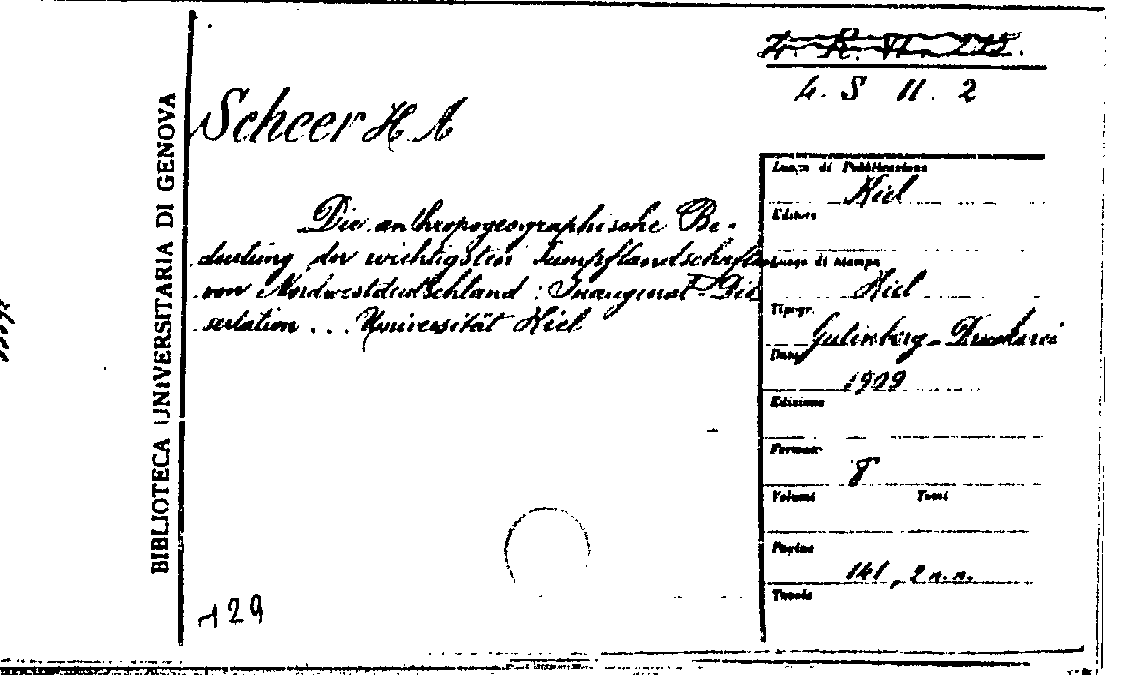 BIBLIOTECA UNIVERSITARIA DI GENOVA
4. R. VI. 215.
4. S II. 2
Scheer H A
Die anthropogeographische Be-
deutung der wichtigsten Sumpflandschaften
von Nordwestdeutschland : Inaugural-Dis
sertation ... Universität Kiel
Luogo di Pubblicazione
Kiel
Editore
Luogo di stampa
Kiel
Tipogr.
Gutenberg-Druckerei
Data
1909
Edizione
Formato
8
Volumi Tomi
Pagine
141, 2 n.n.
Tavole
129